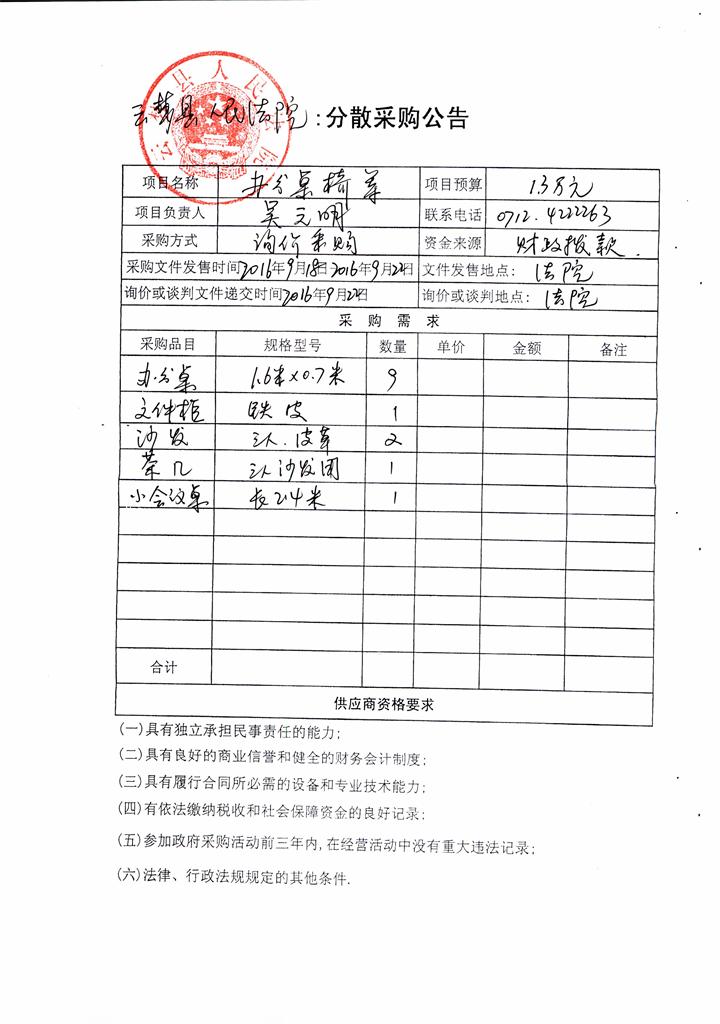 云梦县人民法院:分散采购公告
项目名称 办公桌椅等 项目预算 1.3万元
项目负责人 吴元明 联系电话 0712.4222263
采购方式 询价采购 资金来源 财政拨款.
采购文件发售时间2016年9月18日 2016年9月22日 文件发售地点: 法院
询价或谈判文件递交时间2016年9月22日 询价或谈判地点: 法院
采购需求
采购品目 规格型号 数量 单价 金额 备注
办公桌 1.6米×0.7米 9
文件柜 铁皮 1
沙发 三人.皮革 2
茶几 三人沙发用 1
小会议桌 长2.4米 1
合计
供应商资格要求
(一)具有独立承担民事责任的能力;
(二)具有良好的商业信誉和健全的财务会计制度;
(三)具有履行合同所必需的设备和专业技术能力;
(四)有依法缴纳税收和社会保障资金的良好记录;
(五)参加政府采购活动前三年内,在经营活动中没有重大违法记录;
(六)法律、行政法规规定的其他条件.